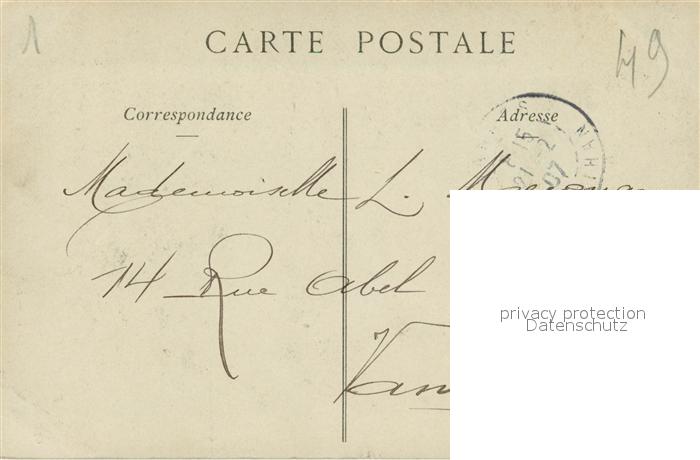 1
49
CARTE POSTALE
Correspondance
Adresse
15
21 - 2
07
Mademoiselle L.
14 Rue Abel
privacy protection
Datenschutz